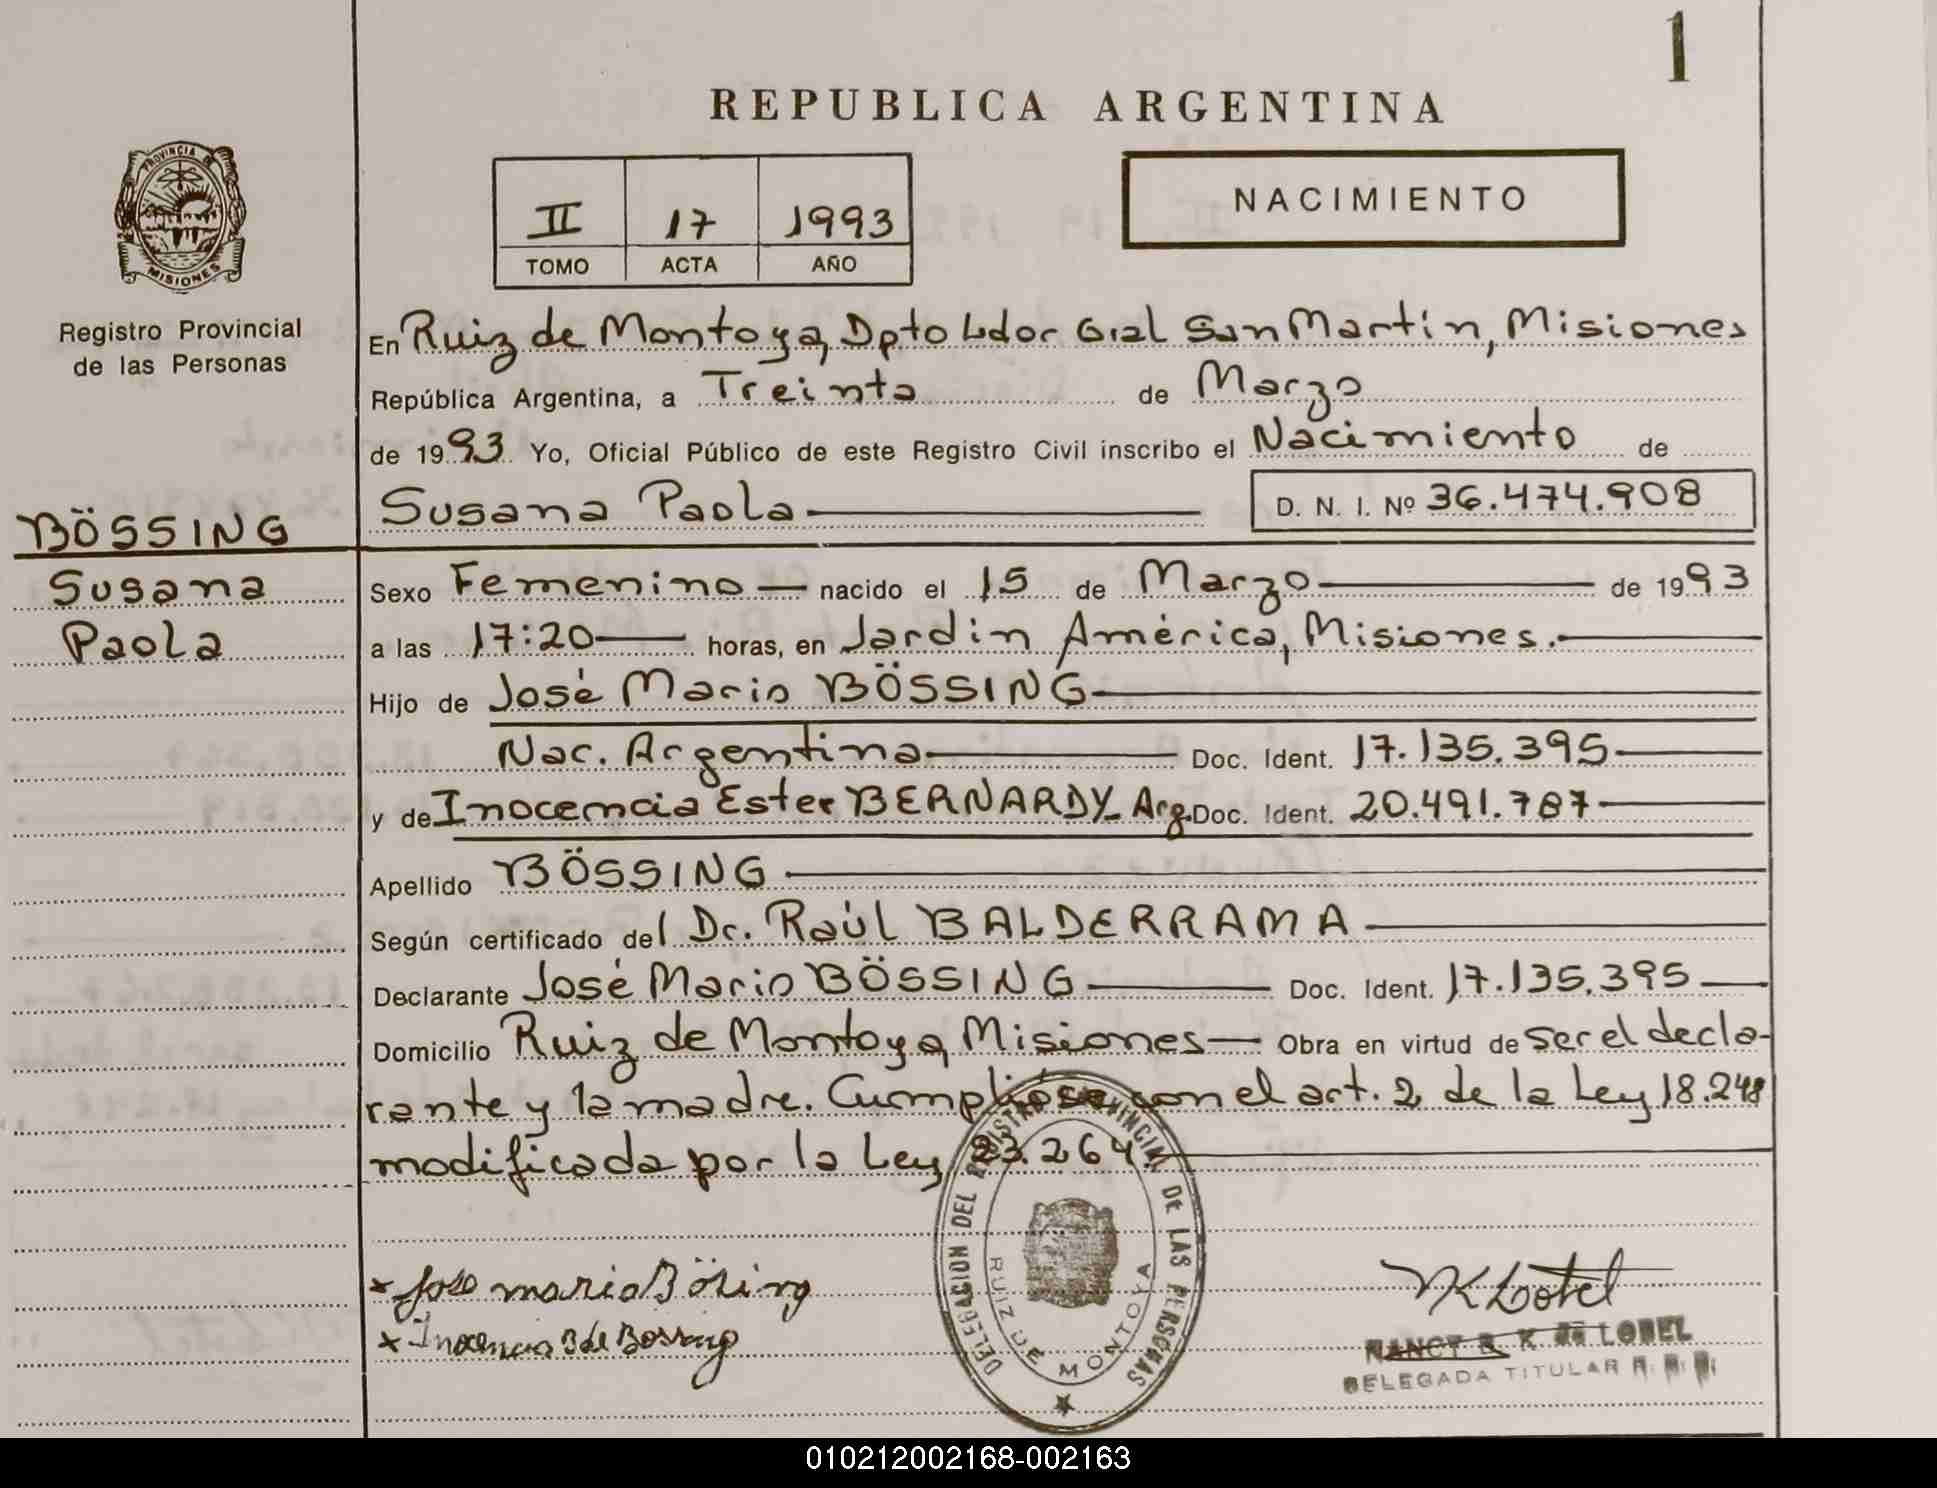 1
REPUBLICA ARGENTINA
PROVINCIA DE
MISIONES
Registro Provincial
de las Personas
II 17 1993
TOMO ACTA AÑO
NACIMIENTO
En Ruiz de Montoya, Dpto Ldor Gral San Martín, Misiones
República Argentina, a Treinta de Marzo
de 1993 Yo, Oficial Público de este Registro Civil inscribo el Nacimiento de
Susana Paola D. N. I. Nº 36.474.908
BÖSSING
Susana
Paola
Sexo Femenino nacido el 15 de Marzo de 1993
a las 17:20 horas, en Jardin América, Misiones.
Hijo de José Mario BÖSSING
Nac. Argentina Doc. Ident. 17.135.395
y de Inocencia Ester BERNARDY Arg. Doc. Ident. 20.491.787
Apellido BÖSSING
Según certificado del Dr. Raúl BALDERRAMA
Declarante José Mario BÖSSING Doc. Ident. 17.135.395
Domicilio Ruiz de Montoya, Misiones Obra en virtud de ser el decla-
rante y la madre. Cumplióse con el art. 2 de la Ley 18.248
modificada por la Ley 23.264
DELEGACION DEL REGISTRO PROVINCIAL DE LAS PERSONAS
RUIZ DE MONTOYA
x Jose mario Bösing
x Inocencia B de Bossing
NANCY B. K. de LOBEL
DELEGADA TITULAR
010212002168-002163